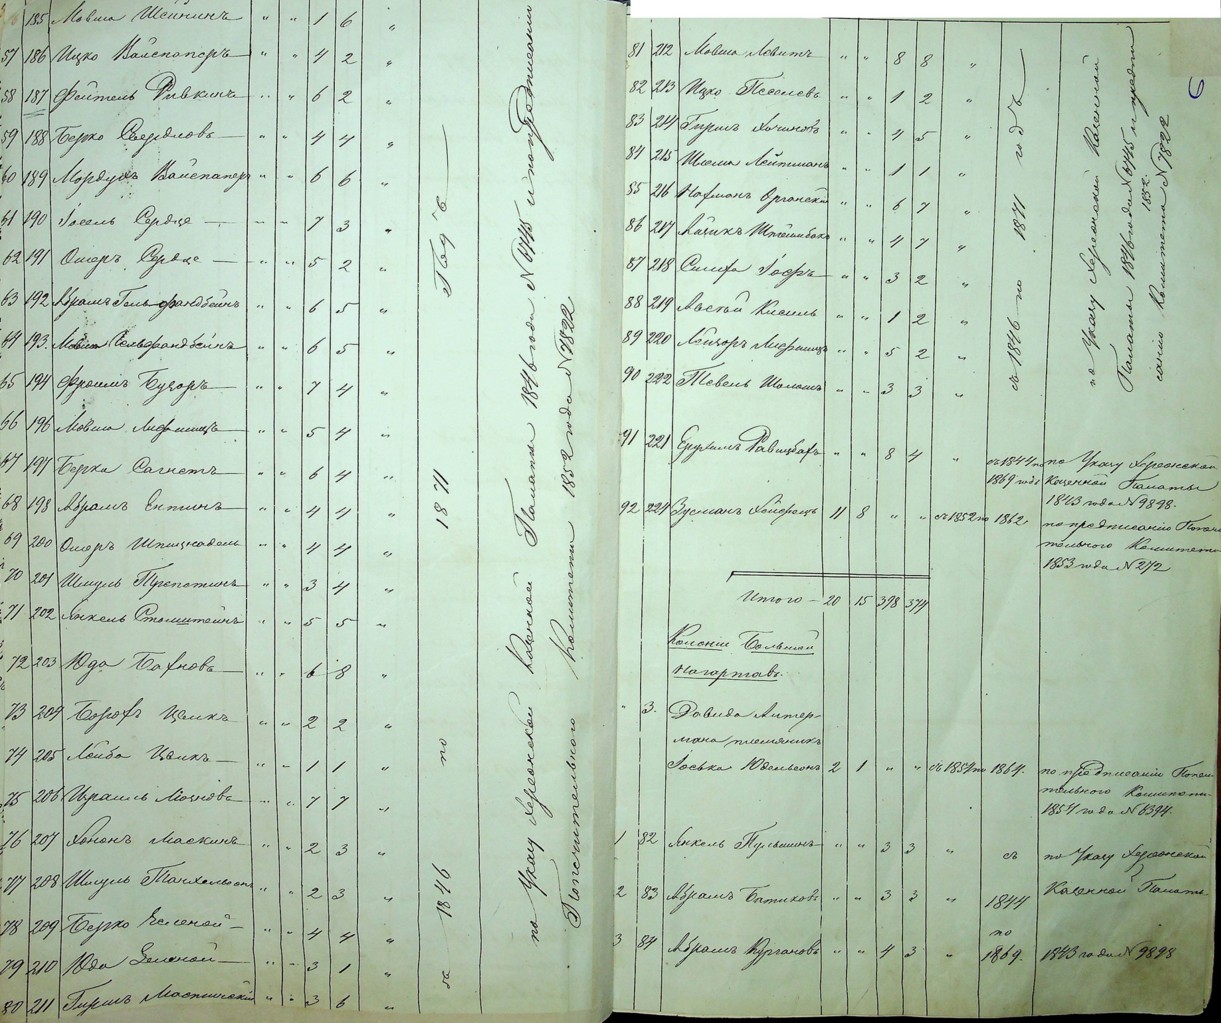 185 Мовша Шейнинъ " " 1 6 "
57 186 Ицко Вайспаперъ " " 4 2 "
58 187 Фейтель Ривкинъ " " 6 2 "
59 188 Берко Свердловъ " " 4 4 "
60 189 Мордухъ Вайспаперъ " " 6 6 "
61 190 Іосель Сердце " " 7 3 "
62 191 Ошеръ Сердце " " 5 2 "
63 192 Абрамъ Гельфандбейнъ " " 6 5 "
64 193. Мовша Гельфандбейнъ " " 6 5 "
65 194 Фроимъ Бухоръ " " 7 4 "
66 196 Мовша Лифшицъ " " 5 4 "
67 197 Берка Сагнетъ " " 6 4 "
68 198 Абрамъ Ентинъ " " 4 4 "
69 200 Ошеръ Шпицнадель " " 4 4 "
70 201 Шмуль Трепетинъ " " 3 4 "
71 202 Янкель Стольштейнъ " " 5 5 "
72 203 Юда Бахновъ " " 6 8 "
73 204 Борохъ Цвикъ " " 2 2 "
74 205 Лейба Цвикъ " " 1 1 "
75 206 Израиль " " 7 7 "
76 207 Хононъ Маскинъ " " 2 3 "
77 208 Шмуль " " 2 3 "
78 209 Берко Зеленой " " 4 4 "
79 210 Юда Зеленой " " 3 1 "
80 211 Гиршъ " " 3 6 "
за 1846 по 1871 годъ
по Указу Херсонской Казенной Палаты 1846 года N 6745 и по предписанію
Попечительного Комитета 1852 года N 7822
6
81 212 Мовша Ловитъ " " 8 8 "
82 213 Ицко " " 1 2 "
83 214 Гиршъ " " 4 5 "
84 215 Шлема Лейтманъ " " 1 1 "
85 216 Нахманъ Органскій " " 6 7 "
86 217 " " 4 7 "
87 218 " " 3 2 "
88 219 Кисиль " " 1 2 "
89 220 Лейзоръ Лифшицъ " " 5 2 "
90 222 Тевель " " 3 3 "
съ 1846 по 1871 годъ
по Указу Херсонской Казенной
Палаты 1846 года N 6745 и предпи
санію Комитета 1852 N 7822
91 221 " " 8 4 " съ 1844 по
1869 годъ
по Указу Херсонской
Казенной Палаты
1843 года N 9898.
92 224 Зусманъ Хейфецъ 11 8 " " съ 1852 по 1862.
по предписанію Попечи
тельного Комитета
1853 года N 272
Итого — 20 15 398 374
Колоніи Большой
Нагартавъ.
" 3. Давида Литер-
мана племянникъ
Іоська Юдельсонъ 2 1 " " съ 1854 по 1864.
по предписанію Попечи
тельного Комитета
1854 года N 6394.
1 82 Янкель Пульшинъ " " 3 3 " съ
2 83 Абрамъ Батиковъ " " 3 3 " 1844
по
3 84 Абрамъ Кургановъ " " 4 3 " 1869.
по Указу Херсонской
Казенной Палаты
1843 года N 9898